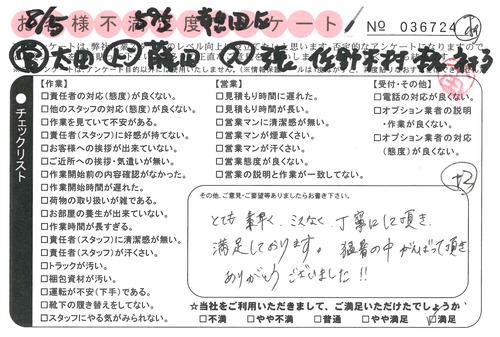 8/5
お客様不満足度アンケート
№ 036724
アンケートは、弊社
チェックリスト
【作業】
□責任者の対応(態度)が良くない。
□他のスタッフの対応(態度)が良くない。
□作業を見ていて不安がある。
□責任者(スタッフ)に好感が持てない。
□お客様への挨拶が出来ていない。
□ご近所への挨拶・気遣いが無い。
□作業開始前の内容確認がなかった。
□作業開始時間が遅れた。
□荷物の取り扱いが雑である。
□お部屋の養生が出来ていない。
□作業時間が長すぎる。
□責任者(スタッフ)に清潔感が無い。
□責任者(スタッフ)が汗くさい。
□トラックが汚い。
□梱包資材が汚い。
□運転が不安(下手)である。
□靴下の履き替えをしてない。
□スタッフにやる気がみられない。
【営業】
□見積もり時間に遅れた。
□見積もり時間が長い。
□営業マンに清潔感が無い。
□営業マンが煙草くさい。
□営業マンが汗くさい。
□営業態度が良くない。
□営業の説明と作業が一致してない。
【受付・その他】
□電話の対応が良くない。
□オプション業者の説明・作業が良くない。
□オプション業者の対応(態度)が良くない。
その他、ご意見・ご要望等ありましたらお書き下さい。
とても素早く、ミスなく、丁寧にして頂き
満足しております。猛暑の中がんばって頂き
ありがとうございました!!
☆当社をご利用いただきまして、ご満足いただけたでしょうか
□不満 □やや不満 □普通 □やや満足 ☑満足